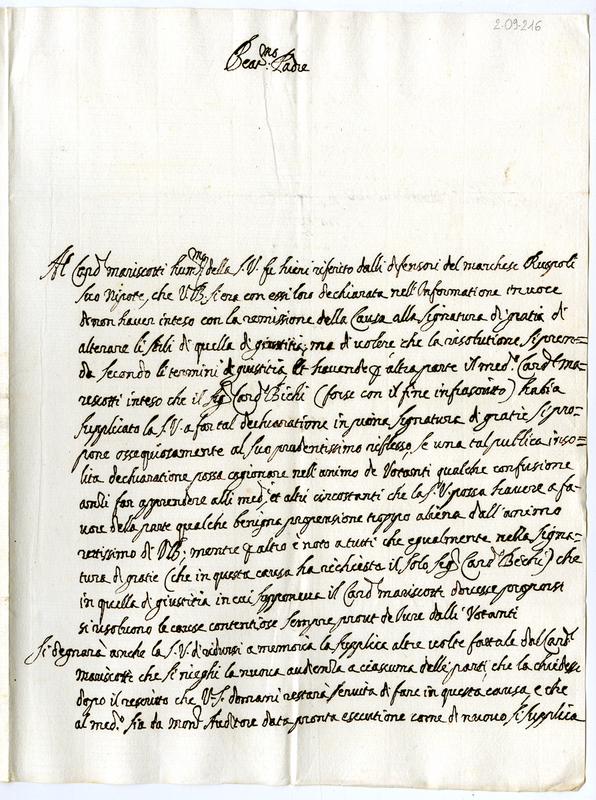 2-09-216
Beat.mo Padre
Al Card.l mariscotti hum.mo della S.V. fu hieri riferito dalli difensori del marchese Ruspoli
suo Nipote, che V.B. si era con essi loro dechiarata nell'Informatione in voce
di non haver inteso con la remissione della Causa alla Signatura di gratia di
alterare li stili di quella di giustitia; ma di volere che la risolutione si pren=
da secondo li termini di giustitia Et havendo p altra parte il med.o Card.l ma=
rescotti inteso che il Sig.r Card.l Bichi (forse con il fine infrascritto) habia
supplicato la S.V. a far tal dechiaratione in piena Signatura di gratie si pro=
pone ossequiosamente al suo prudentissimo riflesso, se una tal publica inso=
lita dechiaratione possa cagionare nell'animo de Votanti qualche confusione
anzi far apprendere alli med.i et altri circostanti che la S.V. possa havere a fa=
vore della parte qualche benigna propensione troppo aliena dall'animo
rettissimo di V.B.; mentre p altro è noto a tutti che egualmente nella Signa=
tura di gratie (che in questa causa ha richiesta il solo Sig.r Card.l Bichi) che
in quella di giustitia in cui supponeva il Card.l mariscotti dovesse proporsi
si risolvono le cause contentiose sempre prout de Iure dalli Votanti
Si degnarà anche la S.V. di ridursi a memoria la supplica altre volte fattale dal Card.l
mariscotti che si nieghi la nuova audienza a ciascuna delle parti, che la chiedesse
dopo il rescritto che V.S. domani restarà servita di fare in questa causa, e che
al med.o sia da mons.r Auditore data pronta esecutione come di nuovo si supplica